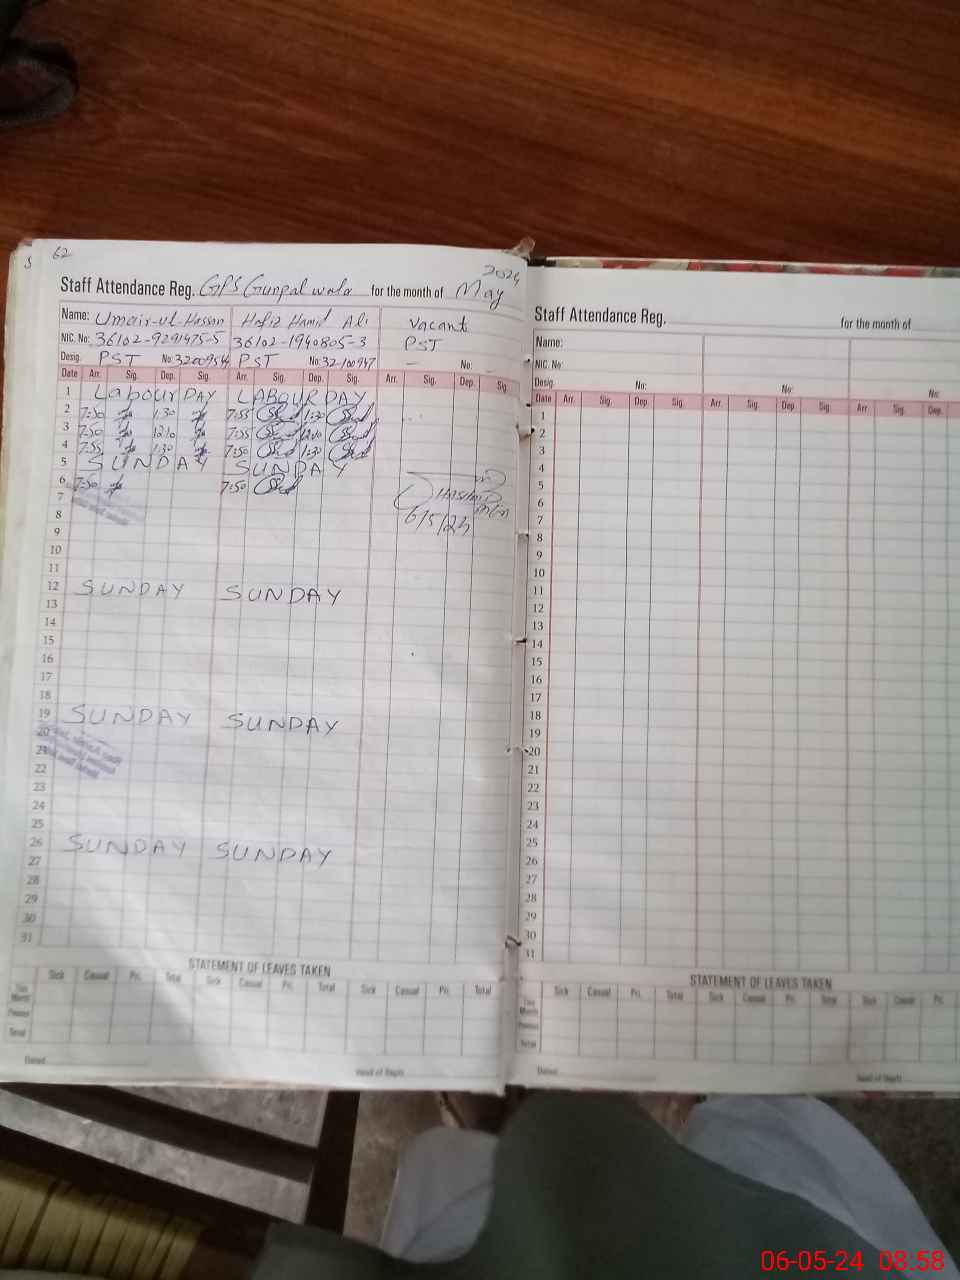 62
2024
Staff Attendance Reg. GPS Gunpalwala for the month of May
Name: Umair-ul-Hassan Hafiz Hamid Ali Vacant
NIC. No: 36102-9291475-5 36102-1940805-3 PST
Desig. PST No: 3200954 PST No: 32-100947 - No:
Date Arr. Sig. Dep. Sig. Arr. Sig. Dep. Sig. Arr. Sig. Dep. Sig.
1 Labour DAY LABOUR DAY
2 7:50 1:30 7:55 1:30
3 7:50 12:10 7:55 12:10
4 7:55 1:30 7:50 1:30
5 SUNDAY SUNDAY
6 7:50 7:50
7
8 6/5/24
9
10
11
12 SUNDAY SUNDAY
13
14
15
16
17
18
19 SUNDAY SUNDAY
20
21
22
23
24
25
26 SUNDAY SUNDAY
27
28
29
30
31
STATEMENT OF LEAVES TAKEN
Sick Casual Pri. Total Sick Casual Pri. Total Sick Casual Pri. Total
This Month
Previous
Total
Dated
Head of Deptt.
Staff Attendance Reg. for the month of
Name:
NIC. No:
Desig. No: No: No:
Date Arr. Sig. Dep. Sig. Arr. Sig. Dep. Sig. Arr. Sig. Dep.
1
2
3
4
5
6
7
8
9
10
11
12
13
14
15
16
17
18
19
20
21
22
23
24
25
26
27
28
29
30
31
STATEMENT OF LEAVES TAKEN
Sick Casual Pri. Total Sick Casual Pri. Total Sick Casual Pri.
This Month
Previous
Total
Dated
Head of Deptt.
06-05-24 08:58